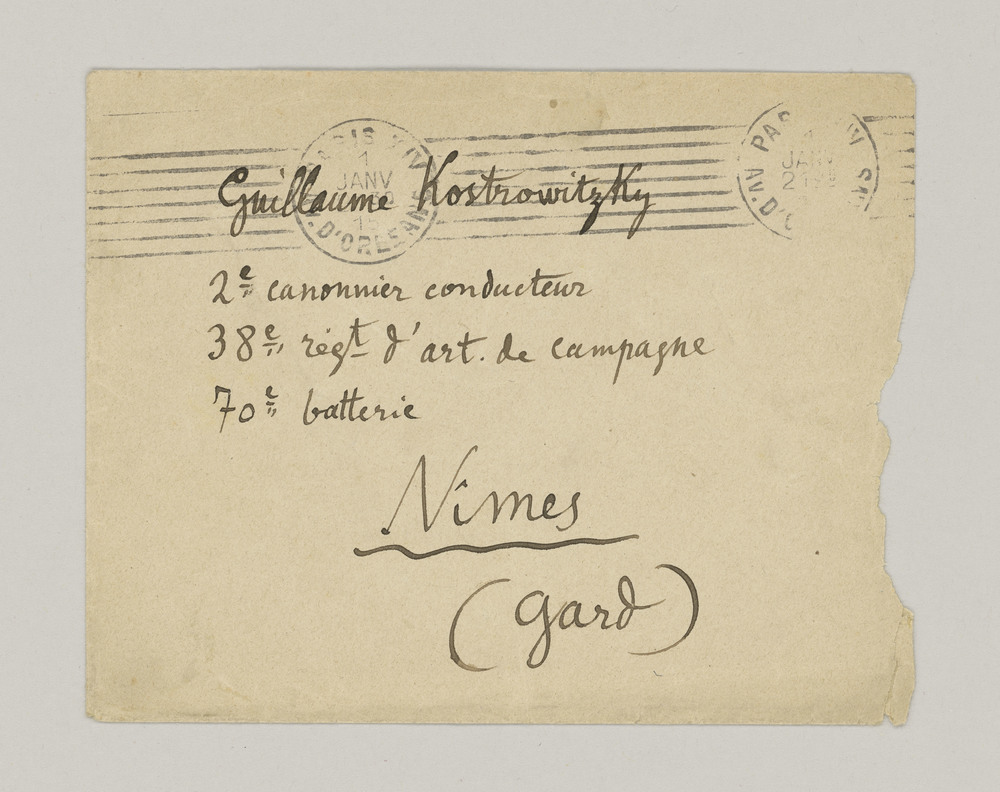 PARIS XIV
1
JANV
AV. D'ORLEANS
PAR
JANV
21
AV. D'O
Guillaume Kostrowitzky
2e canonnier conducteur
38e régt d'art. de campagne
70e batterie
Nîmes
(Gard)